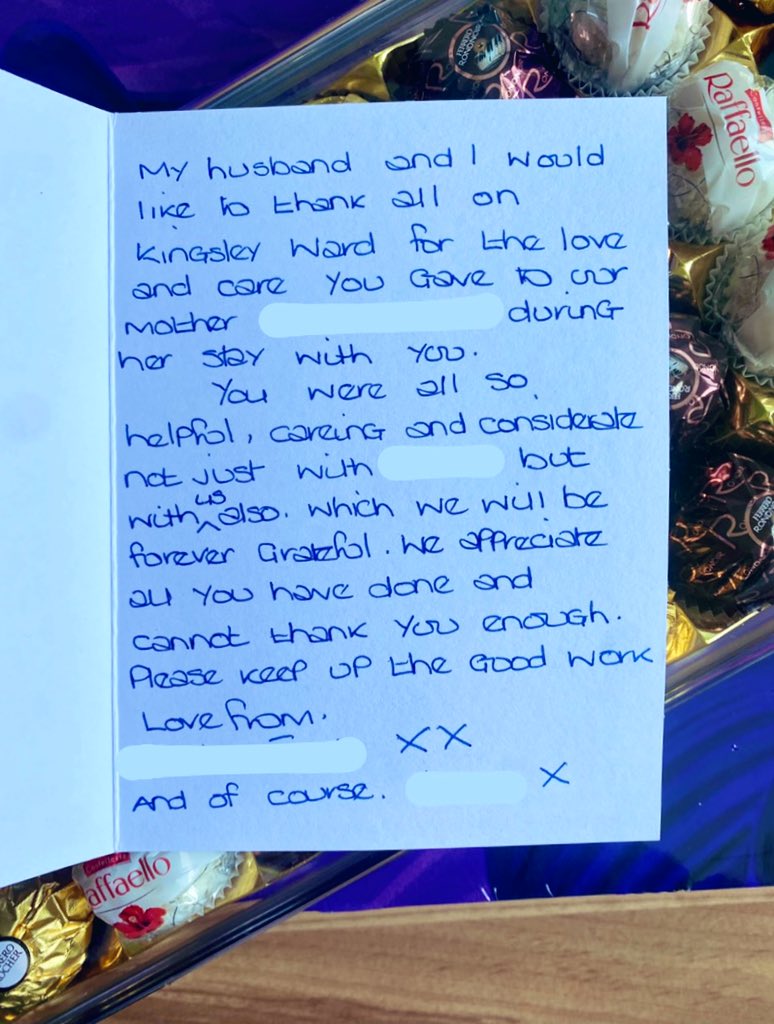 FERRERO
RONDNOIR
Raffaello
My husband and I would
like to thank all on
Kingsley Ward for the love
and care you gave to our
mother during
her stay with you.
You were all so,
helpful, careing and considerate
not just with but
with us also. which we will be
forever Grateful. We appreciate
all you have done and
cannot thank you enough.
Please keep up the Good work
Love from.
XX
And of course. X
Confetteria
affaello
RERO
OCHER